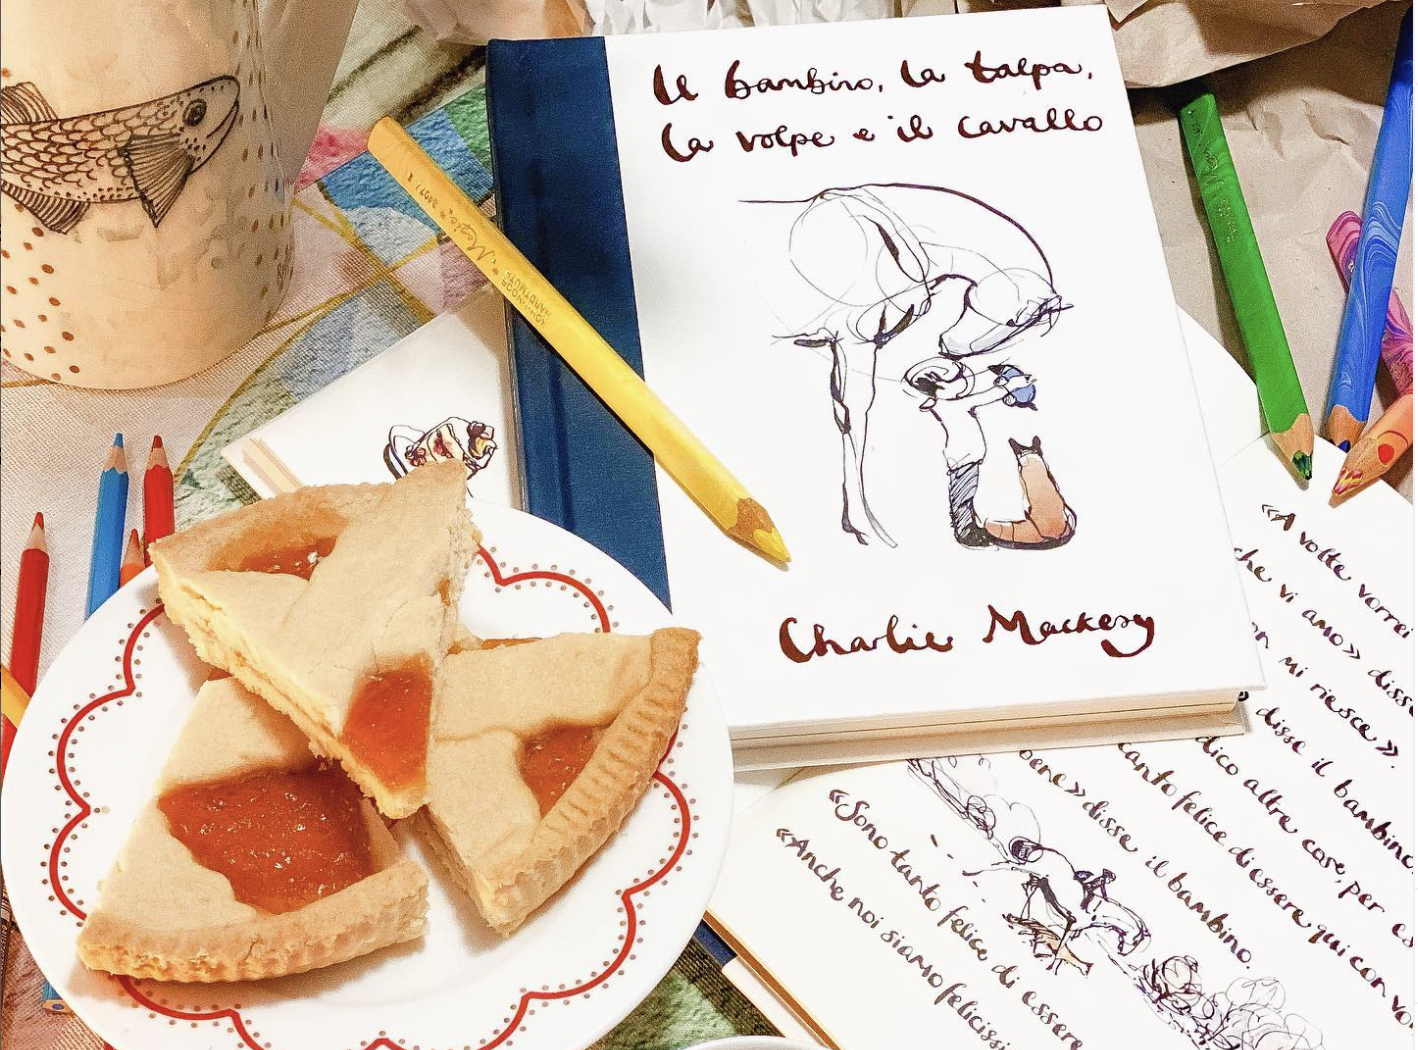 Il bambino, la talpa,
la volpe e il cavallo
Charlie Mackesy
Magic
KOH-I-NOOR
HARDTMUTH
«A volte vorrei
che vi amo» disse
mi riesce».
disse il bambino.
dico altre cose, per es
tanto felice di essere qui con vo
bene» disse il bambino.
«Sono tanto felice di essere
«Anche noi siamo felicissi